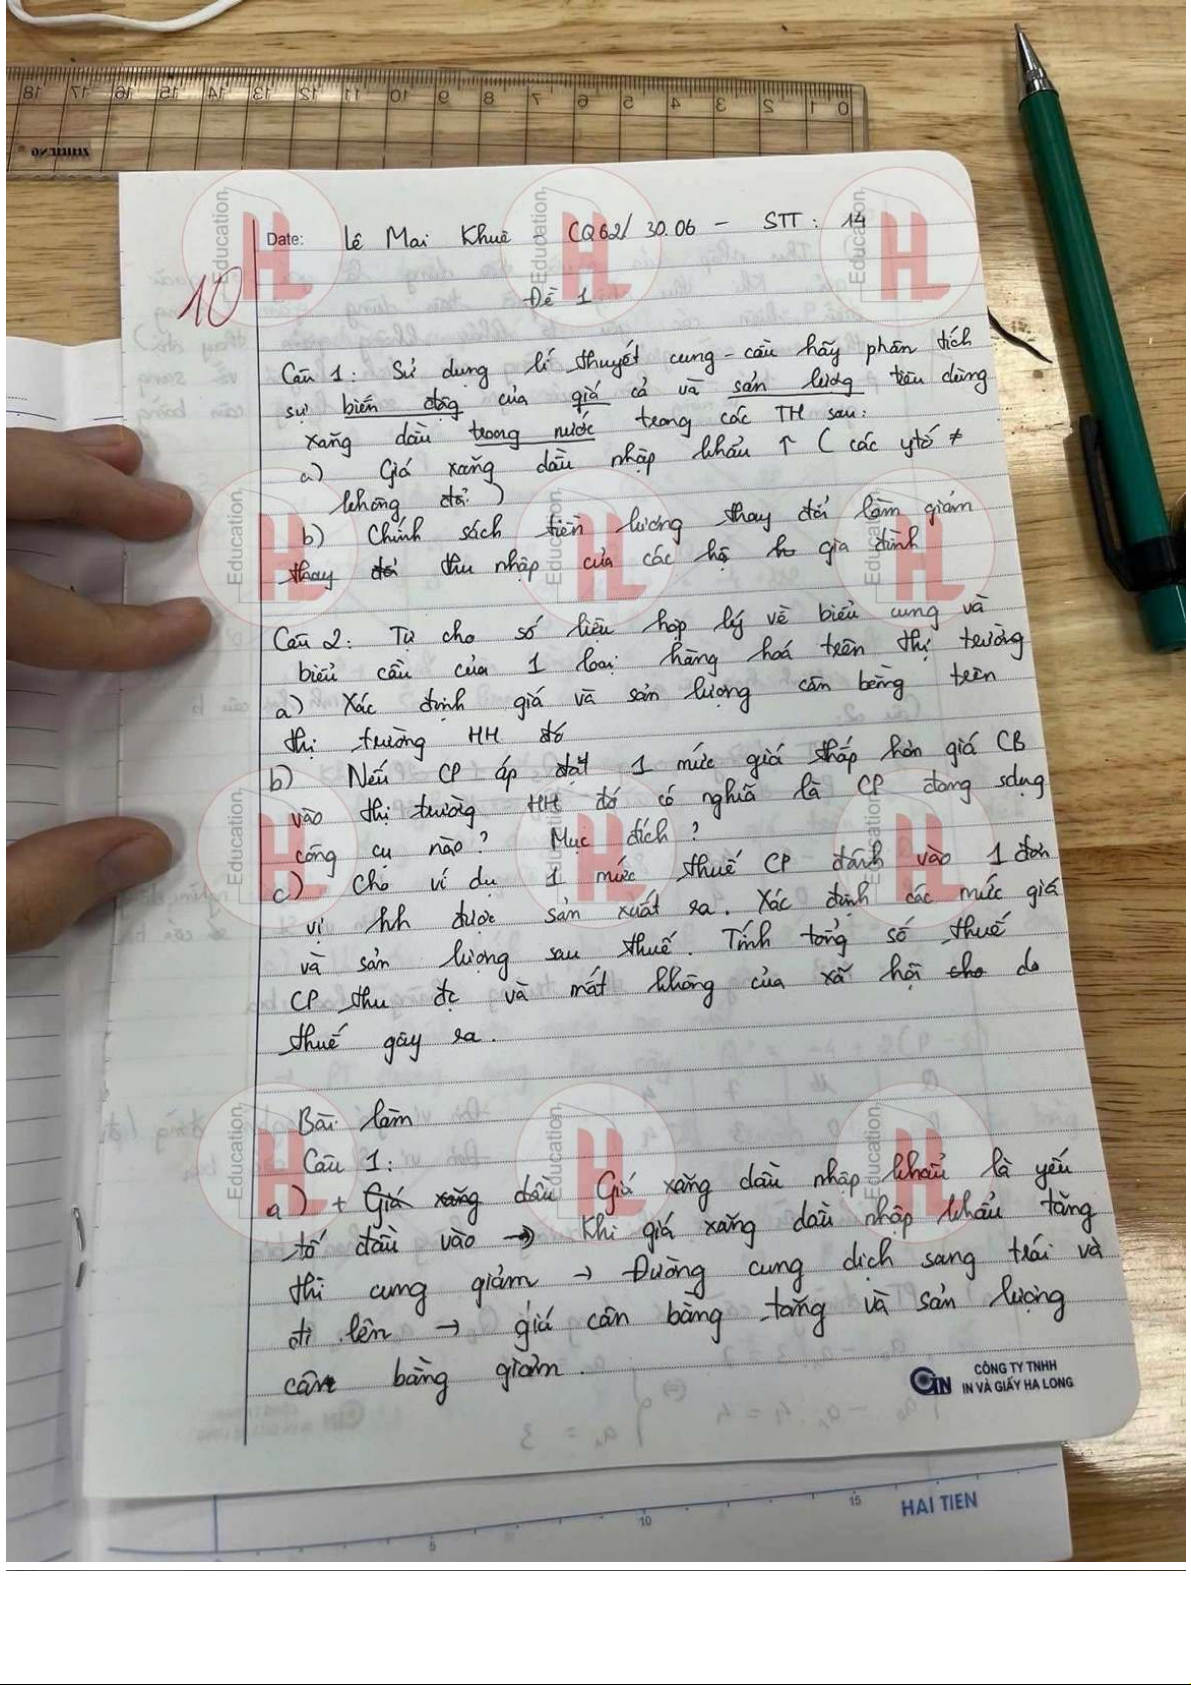 Date: Lê Mai Khuê CQ62/30.06 - STT: 14
10
Đề 1
Câu 1: Sử dụng lí thuyết cung - cầu hãy phân tích
sự biến động của giá cả và sản lượng tiêu dùng
xăng dầu trong nước trong các TH sau:
a) Giá xăng dầu nhập khẩu ↑ ( các ytố ≠
không đổi )
b) Chính sách tiền lương thay đổi làm giảm
thay đổi thu nhập của các hộ gia đình
Câu 2: Tự cho số liệu hợp lý về biểu cung và
biểu cầu của 1 loại hàng hoá trên thị trường
a) Xác định giá và sản lượng cân bằng trên
thị trường HH đó
b) Nếu CP áp đặt 1 mức giá thấp hơn giá CB
vào thị trường HH đó có nghĩa là CP đang sdụng
công cụ nào? Mục đích?
c) Cho ví dụ 1 mức thuế CP đánh vào 1 đơn
vị hh được sản xuất ra. Xác định các mức giá
và sản lượng sau thuế. Tính tổng số thuế
CP thu đc và mất không của xã hội cho do
thuế gây ra.
Bài làm
Câu 1:
a) + Giá xăng dầu Giá xăng dầu nhập khẩu là yếu
tố đầu vào → Khi giá xăng dầu nhập khẩu tăng
thì cung giảm → Đường cung dịch sang trái và
đi lên → giá cân bằng tăng và sản lượng
cân bằng giảm.
CÔNG TY TNHH
IN VÀ GIẤY HẠ LONG
HAI TIEN
5 10 15
18 17 16 15 14 13 12 11 10 9 8 7 6 5 4 3 2 1 0
Education HL